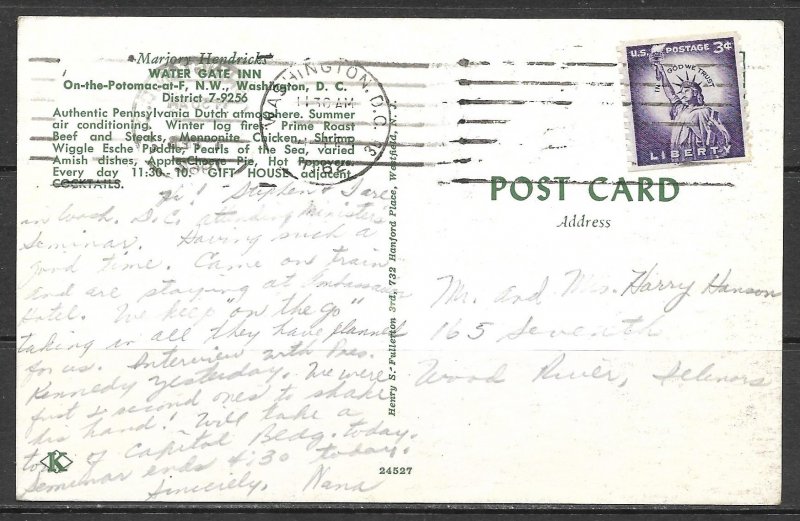 Marjory Hendricks
WATER GATE INN
On-the-Potomac-at-F, N.W., Washington, D. C.
District 7-9256
Authentic Pennsylvania Dutch atmosphere. Summer
air conditioning. Winter log fires. Prime Roast
Beef and Steaks, Mennonite Chicken, Shrimp
Wiggle Esche Puddle, Pearls of the Sea, varied
Amish dishes, Apple-Cheese Pie, Hot Popovers.
Every day 11:30-10. GIFT HOUSE adjacent
COCKTAILS.
Hi! Stephen & I are
in Wash. D.C. attending Ministers
Seminar. Having such a
good time. Came on train
and are staying at Ambassador
Hotel. We keep "on the go"
taking in all they have planned
for us. Interview with Pres.
Kennedy yesterday. We were
first & second ones to shake
his hand! Will take a
tour of Capitol Bldg. today.
Seminar ends 4:30 today.
Sincerely, Nana
K
Henry S. Fullerton 3rd, 732 Hanford Place, Westfield, N. Y.
24527
WASHINGTON, D.C.
11:30 AM
U.S. POSTAGE 3¢
IN GOD WE TRUST
LIBERTY
POST CARD
Address
Mr. and Mrs. Harry Hanson
165 Seventh
Wood River, Illinois